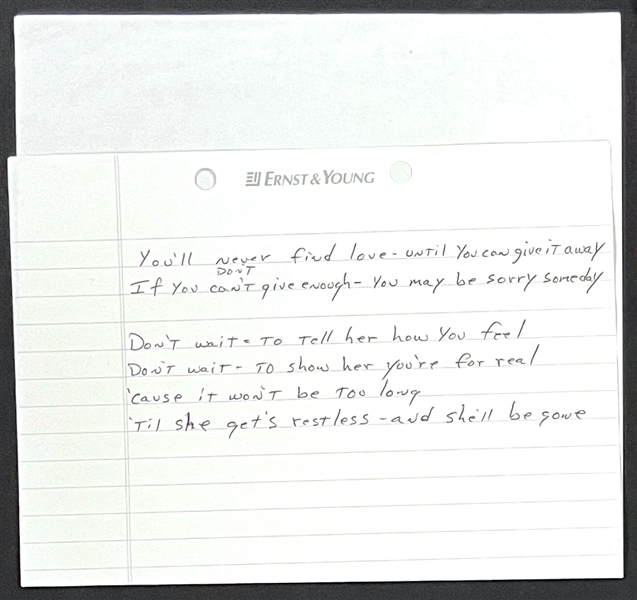 ERNST & YOUNG
You'll never find love - until you can give it away
DON'T
If you can't give enough - you may be sorry someday
Don't wait - To Tell her how you feel
Don't wait - To show her you're for real
'cause it won't be too long
'Til she get's restless - and she'll be gone